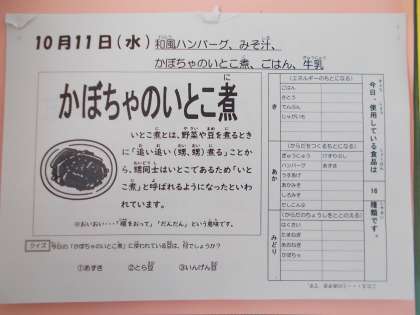 10月11日(水) 和風ハンバーグ、みそ汁、
かぼちゃのいとこ煮、ごはん、牛乳
かぼちゃのいとこ煮
いとこ煮とは、野菜や豆を煮るとき
に「追い追い(甥、甥)煮る」ことか
ら、甥同士はいとこであるため「いと
こ煮」と呼ばれるようになったといわ
れています。
※おいおい…「順をおって」「だんだん」という意味です。
クイズ 今日の「かぼちゃのいとこ煮」に使われている豆は、何でしょうか?
①あずき ②とら豆 ③いんげん豆
今日、使用している食品は
16
種類です。
き
(エネルギーのもとになる)
ごはん
さとう
でんぷん
じゃがいも
あか
(からだをつくるもとになる)
ぎゅうにゅう
ハンバーグ あずき
うすあげ
あかみそ
しろみそ
だしこんぶ
みどり
(からだのちょうしをととのえる)
はくさい
たまねぎ
あおねぎ
かぼちゃ